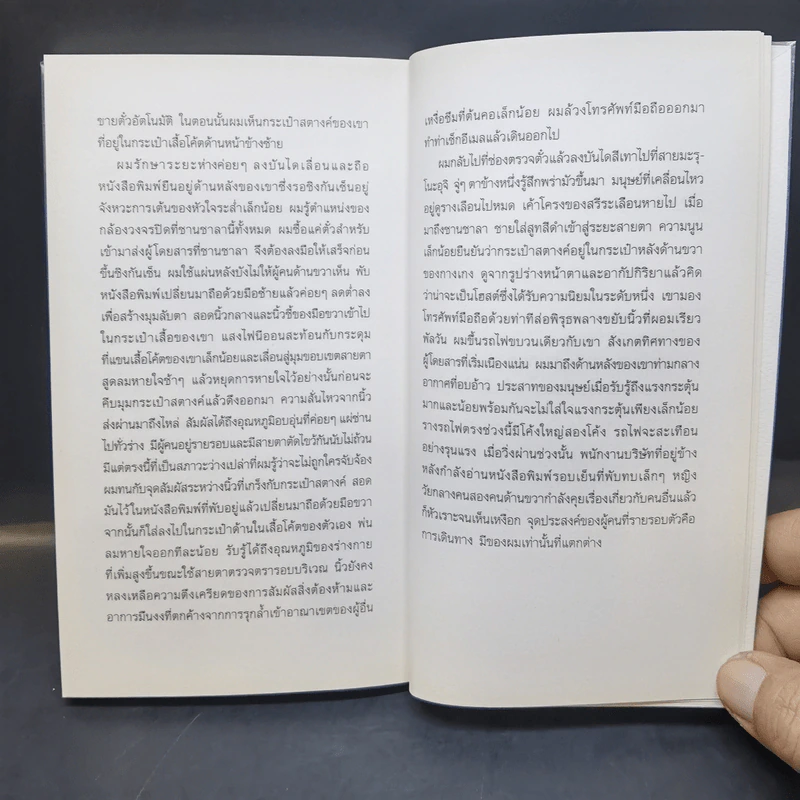 ขายตั๋วอัตโนมัติ ในตอนนั้นผมเห็นกระเป๋าสตางค์ของเขา
ที่อยู่ในกระเป๋าเสื้อโค้ตด้านหน้าข้างซ้าย
ผมรักษาระยะห่างค่อยๆ ลงบันไดเลื่อนและถือ
หนังสือพิมพ์ยืนอยู่ด้านหลังของเขาซึ่งรอชิงกันเซ็นอยู่
จังหวะการเต้นของหัวใจระส่ำเล็กน้อย ผมรู้ตำแหน่งของ
กล้องวงจรปิดที่ชานชาลานี้ทั้งหมด ผมซื้อแค่ตั๋วสำหรับ
เข้ามาส่งผู้โดยสารที่ชานชาลา จึงต้องลงมือให้เสร็จก่อน
ขึ้นชิงกันเซ็น ผมใช้แผ่นหลังบังไม่ให้ผู้คนด้านขวาเห็น พับ
หนังสือพิมพ์เปลี่ยนมาถือด้วยมือซ้ายแล้วค่อยๆ ลดต่ำลง
เพื่อสร้างมุมลับตา สอดนิ้วกลางและนิ้วชี้ของมือขวาเข้าไป
ในกระเป๋าเสื้อของเขา แสงไฟนีออนสะท้อนกับกระดุม
ที่แขนเสื้อโค้ตของเขาเล็กน้อยและเลื่อนสู่มุมขอบเขตสายตา
สูดลมหายใจช้าๆ แล้วหยุดการหายใจไว้อย่างนั้นก่อนจะ
คีบมุมกระเป๋าสตางค์แล้วดึงออกมา ความสั่นไหวจากนิ้ว
ส่งผ่านมาถึงไหล่ สัมผัสได้ถึงอุณหภูมิอบอุ่นที่ค่อยๆ แผ่ซ่าน
ไปทั่วร่าง มีผู้คนอยู่รายรอบและมีสายตาตัดไขว้กันนับไม่ถ้วน
มีแต่ตรงนี้ที่เป็นสภาวะว่างเปล่าที่ผมรู้ว่าจะไม่ถูกใครจับจ้อง
ผมทนกับจุดสัมผัสระหว่างนิ้วที่เกร็งกับกระเป๋าสตางค์ สอด
มันไว้ในหนังสือพิมพ์ที่พับอยู่แล้วเปลี่ยนมาถือด้วยมือขวา
จากนั้นก็ใส่ลงไปในกระเป๋าด้านในเสื้อโค้ตของตัวเอง พ่น
ลมหายใจออกทีละน้อย รับรู้ได้ถึงอุณหภูมิของร่างกาย
ที่เพิ่มสูงขึ้นขณะใช้สายตาตรวจตรารอบบริเวณ นิ้วยังคง
หลงเหลือความตึงเครียดของการสัมผัสสิ่งต้องห้ามและ
อาการมึนงงที่ตกค้างจากการรุกล้ำเข้าอาณาเขตของผู้อื่น
เหงื่อซึมที่ต้นคอเล็กน้อย ผมล้วงโทรศัพท์มือถือออกมา
ทำท่าเช็กอีเมลแล้วเดินออกไป
ผมกลับไปที่ช่องตรวจตั๋วแล้วลงบันไดสีเทาไปที่สายมะรุ-
โนะอุจิ จู่ๆ ตาข้างหนึ่งรู้สึกพร่ามัวขึ้นมา มนุษย์ที่เคลื่อนไหว
อยู่ดูรางเลือนไปหมด เค้าโครงของสรีระเลือนหายไป เมื่อ
มาถึงชานชาลา ชายใส่สูทสีดำเข้าสู่ระยะสายตา ความนูน
เล็กน้อยยืนยันว่ากระเป๋าสตางค์อยู่ในกระเป๋าหลังด้านขวา
ของกางเกง ดูจากรูปร่างหน้าตาและอากัปกิริยาแล้วคิด
ว่าน่าจะเป็นโฮสต์ซึ่งได้รับความนิยมในระดับหนึ่ง เขามอง
โทรศัพท์มือถือด้วยท่าทีส่อพิรุธพลางขยับนิ้วที่ผอมเรียว
พัลวัน ผมขึ้นรถไฟขบวนเดียวกับเขา สังเกตทิศทางของ
ผู้โดยสารที่เริ่มเนืองแน่น ผมมาถึงด้านหลังของเขาท่ามกลาง
อากาศที่อบอ้าว ประสาทของมนุษย์เมื่อรับรู้ถึงแรงกระตุ้น
มากและน้อยพร้อมกันจะไม่ใส่ใจแรงกระตุ้นเพียงเล็กน้อย
รางรถไฟตรงช่วงนี้มีโค้งใหญ่สองโค้ง รถไฟจะสะเทือน
อย่างรุนแรง เมื่อวิ่งผ่านช่วงนั้น พนักงานบริษัทที่อยู่ข้าง
หลังกำลังอ่านหนังสือพิมพ์รอบเย็นที่พับทบเล็กๆ หญิง
วัยกลางคนสองคนด้านขวากำลังคุยเรื่องเกี่ยวกับคนอื่นแล้ว
ก็หัวเราะจนเห็นเหงือก จุดประสงค์ของผู้คนที่รายรอบตัวคือ
การเดินทาง มีของผมเท่านั้นที่แตกต่าง